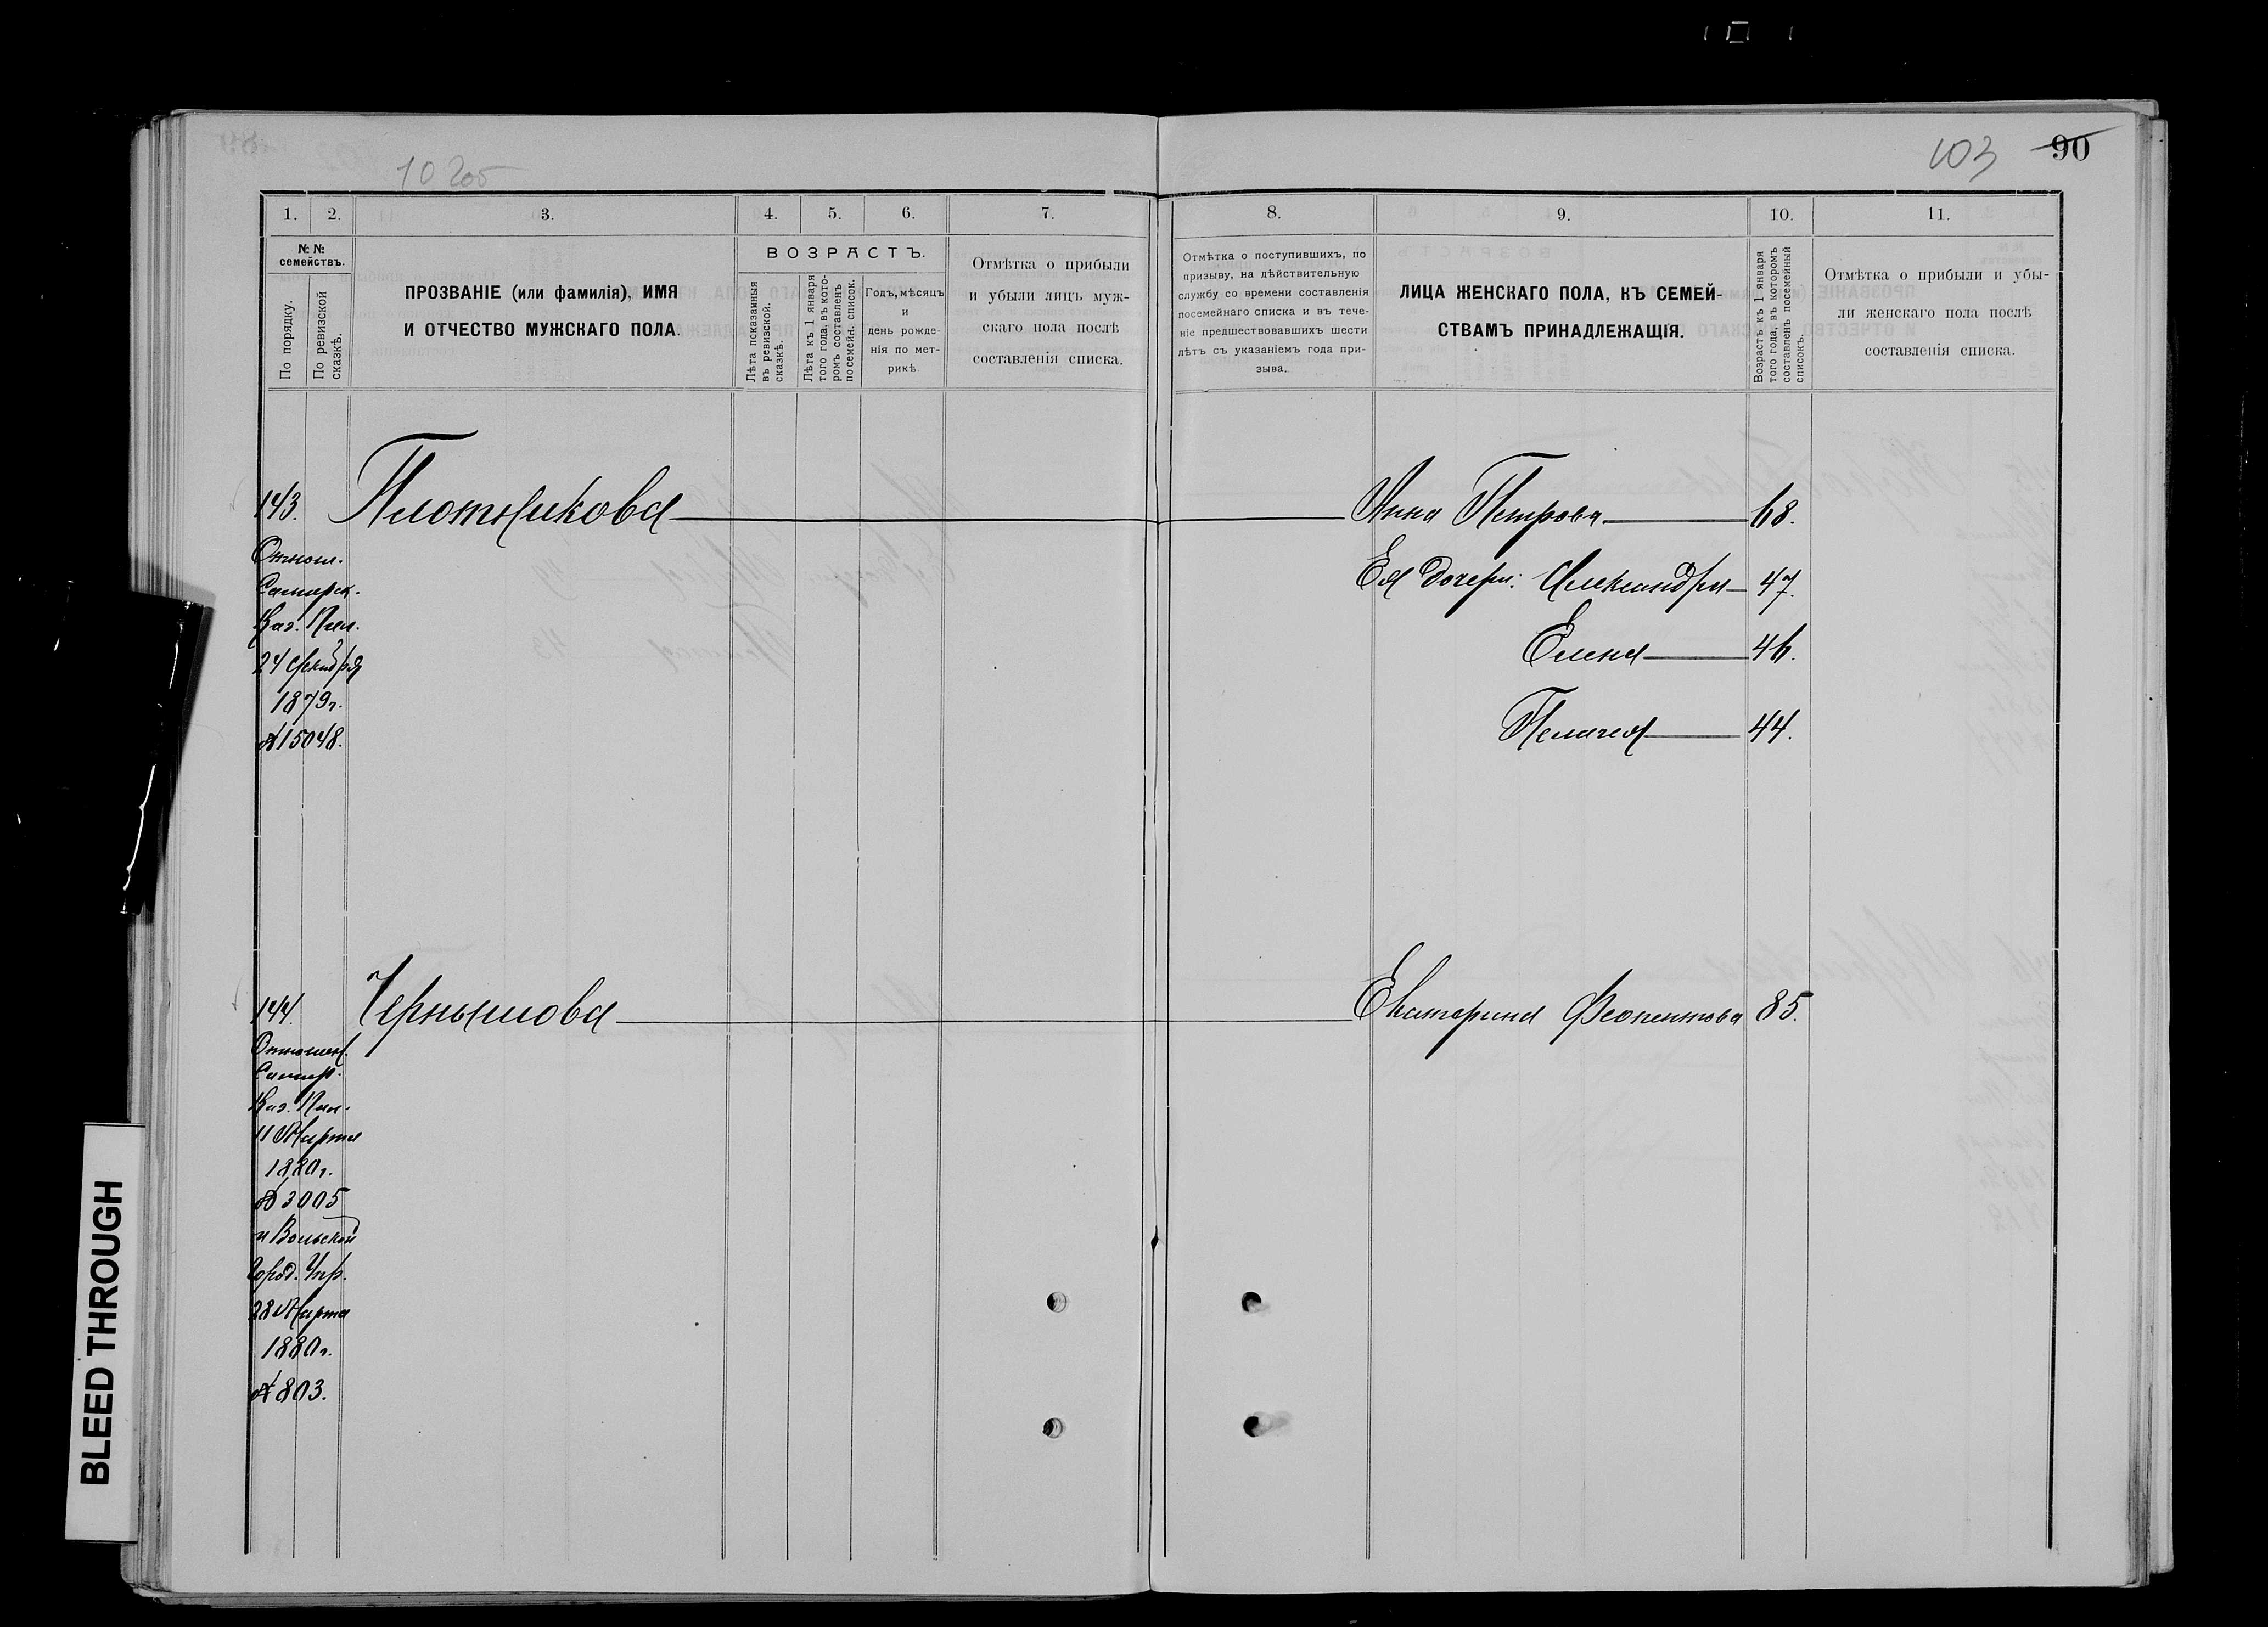 103 90
1. 2. 3. 4. 5. 6. 7. 8. 9. 10. 11.
№ №
семействъ.
По порядку.
По ревизской
сказкѣ.
ПРОЗВАНІЕ (или фамилія), ИМЯ
И ОТЧЕСТВО МУЖСКАГО ПОЛА.
ВОЗРАСТЪ.
Лѣта показанныя
въ ревизской.
сказкѣ.
Лѣта къ 1 января
того года, въ кото-
ромъ составленъ
посемейн. список.
Годъ, мѣсяцъ
и
день рожде-
нія по мет-
рикѣ
Отмѣтка о прибыли
и убыли лицъ муж-
скаго пола послѣ
составленія списка.
Отмѣтка о поступившихъ, по
призыву, на дѣйствительную
службу со времени составленія
посемейнаго списка и въ тече-
ніе предшествовавшихъ шести
лѣтъ съ указаніемъ года при-
зыва.
ЛИЦА ЖЕНСКАГО ПОЛА, КЪ СЕМЕЙ-
СТВАМЪ ПРИНАДЛЕЖАЩІЯ.
Возрастъ къ 1 января
того года, въ которомъ
составленъ посемейный
списокъ.
Отмѣтка о прибыли и убы-
ли женскаго пола послѣ
составленія списка.
143. Плотникова Анна Петрова 68.
Отнош.
Самарск.
Каз. Пал.
24
1879 г.
№ 15048.
Ея дочери: Александра 47.
Елена 46.
Пелагея 44.
144. Чернышова Екатерина Феопентова 85.
Отношен.
Самар.
Каз. Пал.
11 Марта
1880 г.
№ 3005
и Вольской
Город. Упр.
28 Марта
1880 г.
№ 803.
BLEED THROUGH